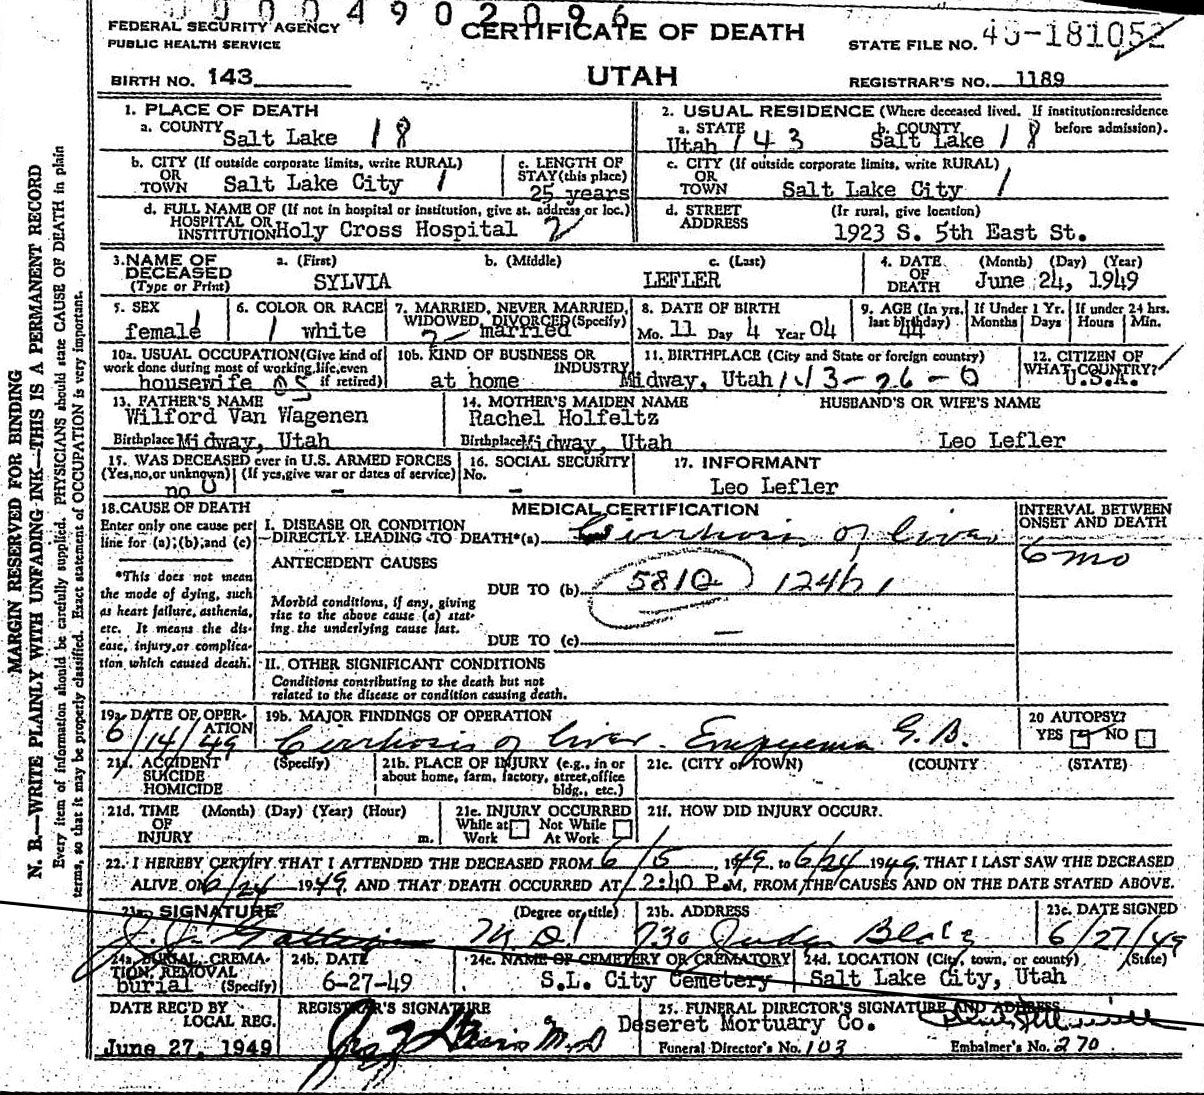 0004902096
FEDERAL SECURITY AGENCY
PUBLIC HEALTH SERVICE
CERTIFICATE OF DEATH
STATE FILE NO. 49-181052
BIRTH NO. 143
UTAH
REGISTRAR'S NO. 1189
MARGIN RESERVED FOR BINDING
N. B.—WRITE PLAINLY WITH UNFADING INK—THIS IS A PERMANENT RECORD
Every item of information should be carefully supplied. PHYSICIANS should state CAUSE OF DEATH in plain
terms, so that it may be properly classified. Exact statement of OCCUPATION is very important.
1. PLACE OF DEATH
a. COUNTY
Salt Lake 18
2. USUAL RESIDENCE (Where deceased lived. If institution:residence
before admission).
a. STATE
Utah 143
b. COUNTY
Salt Lake 18
b. CITY (If outside corporate limits, write RURAL)
OR
TOWN Salt Lake City 1
c. LENGTH OF
STAY(this place)
25 years
c. CITY (If outside corporate limits, write RURAL)
OR
TOWN Salt Lake City 1
d. FULL NAME OF (If not in hospital or institution, give st. address or loc.)
HOSPITAL OR
INSTITUTION Holy Cross Hospital 2
d. STREET
ADDRESS
(If rural, give location)
1923 S. 5th East St.
3. NAME OF
DECEASED
(Type or Print)
a. (First)
b. (Middle)
c. (Last)
SYLVIA
LEFLER
4. DATE
OF
DEATH
(Month) (Day) (Year)
June 24, 1949
5. SEX
female 1
6. COLOR OR RACE
1 white
7. MARRIED, NEVER MARRIED,
WIDOWED, DIVORCED(Specify)
2 married
8. DATE OF BIRTH
Mo. 11 Day 4 Year 04
9. AGE (In yrs.
last birthday)
44
If Under 1 Yr.
Months Days
If under 24 hrs.
Hours Min.
10a. USUAL OCCUPATION(Give kind of
work done during most of working life,even
if retired)
housewife 05
10b. KIND OF BUSINESS OR
INDUSTRY
at home
11. BIRTHPLACE (City and State or foreign country)
Midway, Utah 143-26-0
12. CITIZEN OF
WHAT COUNTRY?
U.S.A.
13. FATHER'S NAME
Wilford Van Wagenen
Birthplace Midway, Utah
14. MOTHER'S MAIDEN NAME
Rachel Holfeltz
Birthplace Midway, Utah
HUSBAND'S OR WIFE'S NAME
Leo Lefler
15. WAS DECEASED ever in U.S. ARMED FORCES
(Yes,no,or unknown) (If yes,give war or dates of service)
no 0 -
16. SOCIAL SECURITY
No.
-
17. INFORMANT
Leo Lefler
18. CAUSE OF DEATH
Enter only one cause per
line for (a);(b);and (c)
*This does not mean
the mode of dying, such
as heart failure, asthenia,
etc. It means the dis-
ease, injury,or complica-
tion which caused death.
MEDICAL CERTIFICATION
INTERVAL BETWEEN
ONSET AND DEATH
I. DISEASE OR CONDITION
DIRECTLY LEADING TO DEATH*(a) Cirrhosis of liver
6 mo
ANTECEDENT CAUSES
DUE TO (b) 5810 124b1
Morbid conditions, if any, giving
rise to the above cause (a) stat-
ing the underlying cause last.
DUE TO (c) —
II. OTHER SIGNIFICANT CONDITIONS
Conditions contributing to the death but not
related to the disease or condition causing death.
19a. DATE OF OPER-
ATION
6/14/49
19b. MAJOR FINDINGS OF OPERATION
Cirrhosis of liver. Empyema G.B.
20 AUTOPSY?
YES NO
21a. ACCIDENT
SUICIDE
HOMICIDE
(Specify)
21b. PLACE OF INJURY (e.g., in or
about home, farm, factory, street,office
bldg., etc.)
21c. (CITY or TOWN) (COUNTY) (STATE)
21d. TIME
OF
INJURY
(Month) (Day) (Year) (Hour)
m.
21e. INJURY OCCURRED
While at Work
Not While At Work
21f. HOW DID INJURY OCCUR?.
22. I HEREBY CERTIFY THAT I ATTENDED THE DECEASED FROM 6/5, 1949, to 6/24 1949, THAT I LAST SAW THE DECEASED
ALIVE ON 6/24 1949, AND THAT DEATH OCCURRED AT 2:40 P.M, FROM THE CAUSES AND ON THE DATE STATED ABOVE.
23a. SIGNATURE
(Degree or title)
M.D.
23b. ADDRESS
730 Judge Bldg
23c. DATE SIGNED
6/27/49
24a. BURIAL, CREMA-
TION, REMOVAL
burial (Specify)
24b. DATE
6-27-49
24c. NAME OF CEMETERY OR CREMATORY
S.L. City Cemetery
24d. LOCATION (City, town, or county) (State)
Salt Lake City, Utah
DATE REC'D BY
LOCAL REG.
June 27, 1949
REGISTRAR'S SIGNATURE
M.D
25. FUNERAL DIRECTOR'S SIGNATURE AND ADDRESS
Deseret Mortuary Co.
Funeral Director's No. 103
Embalmer's No. 270